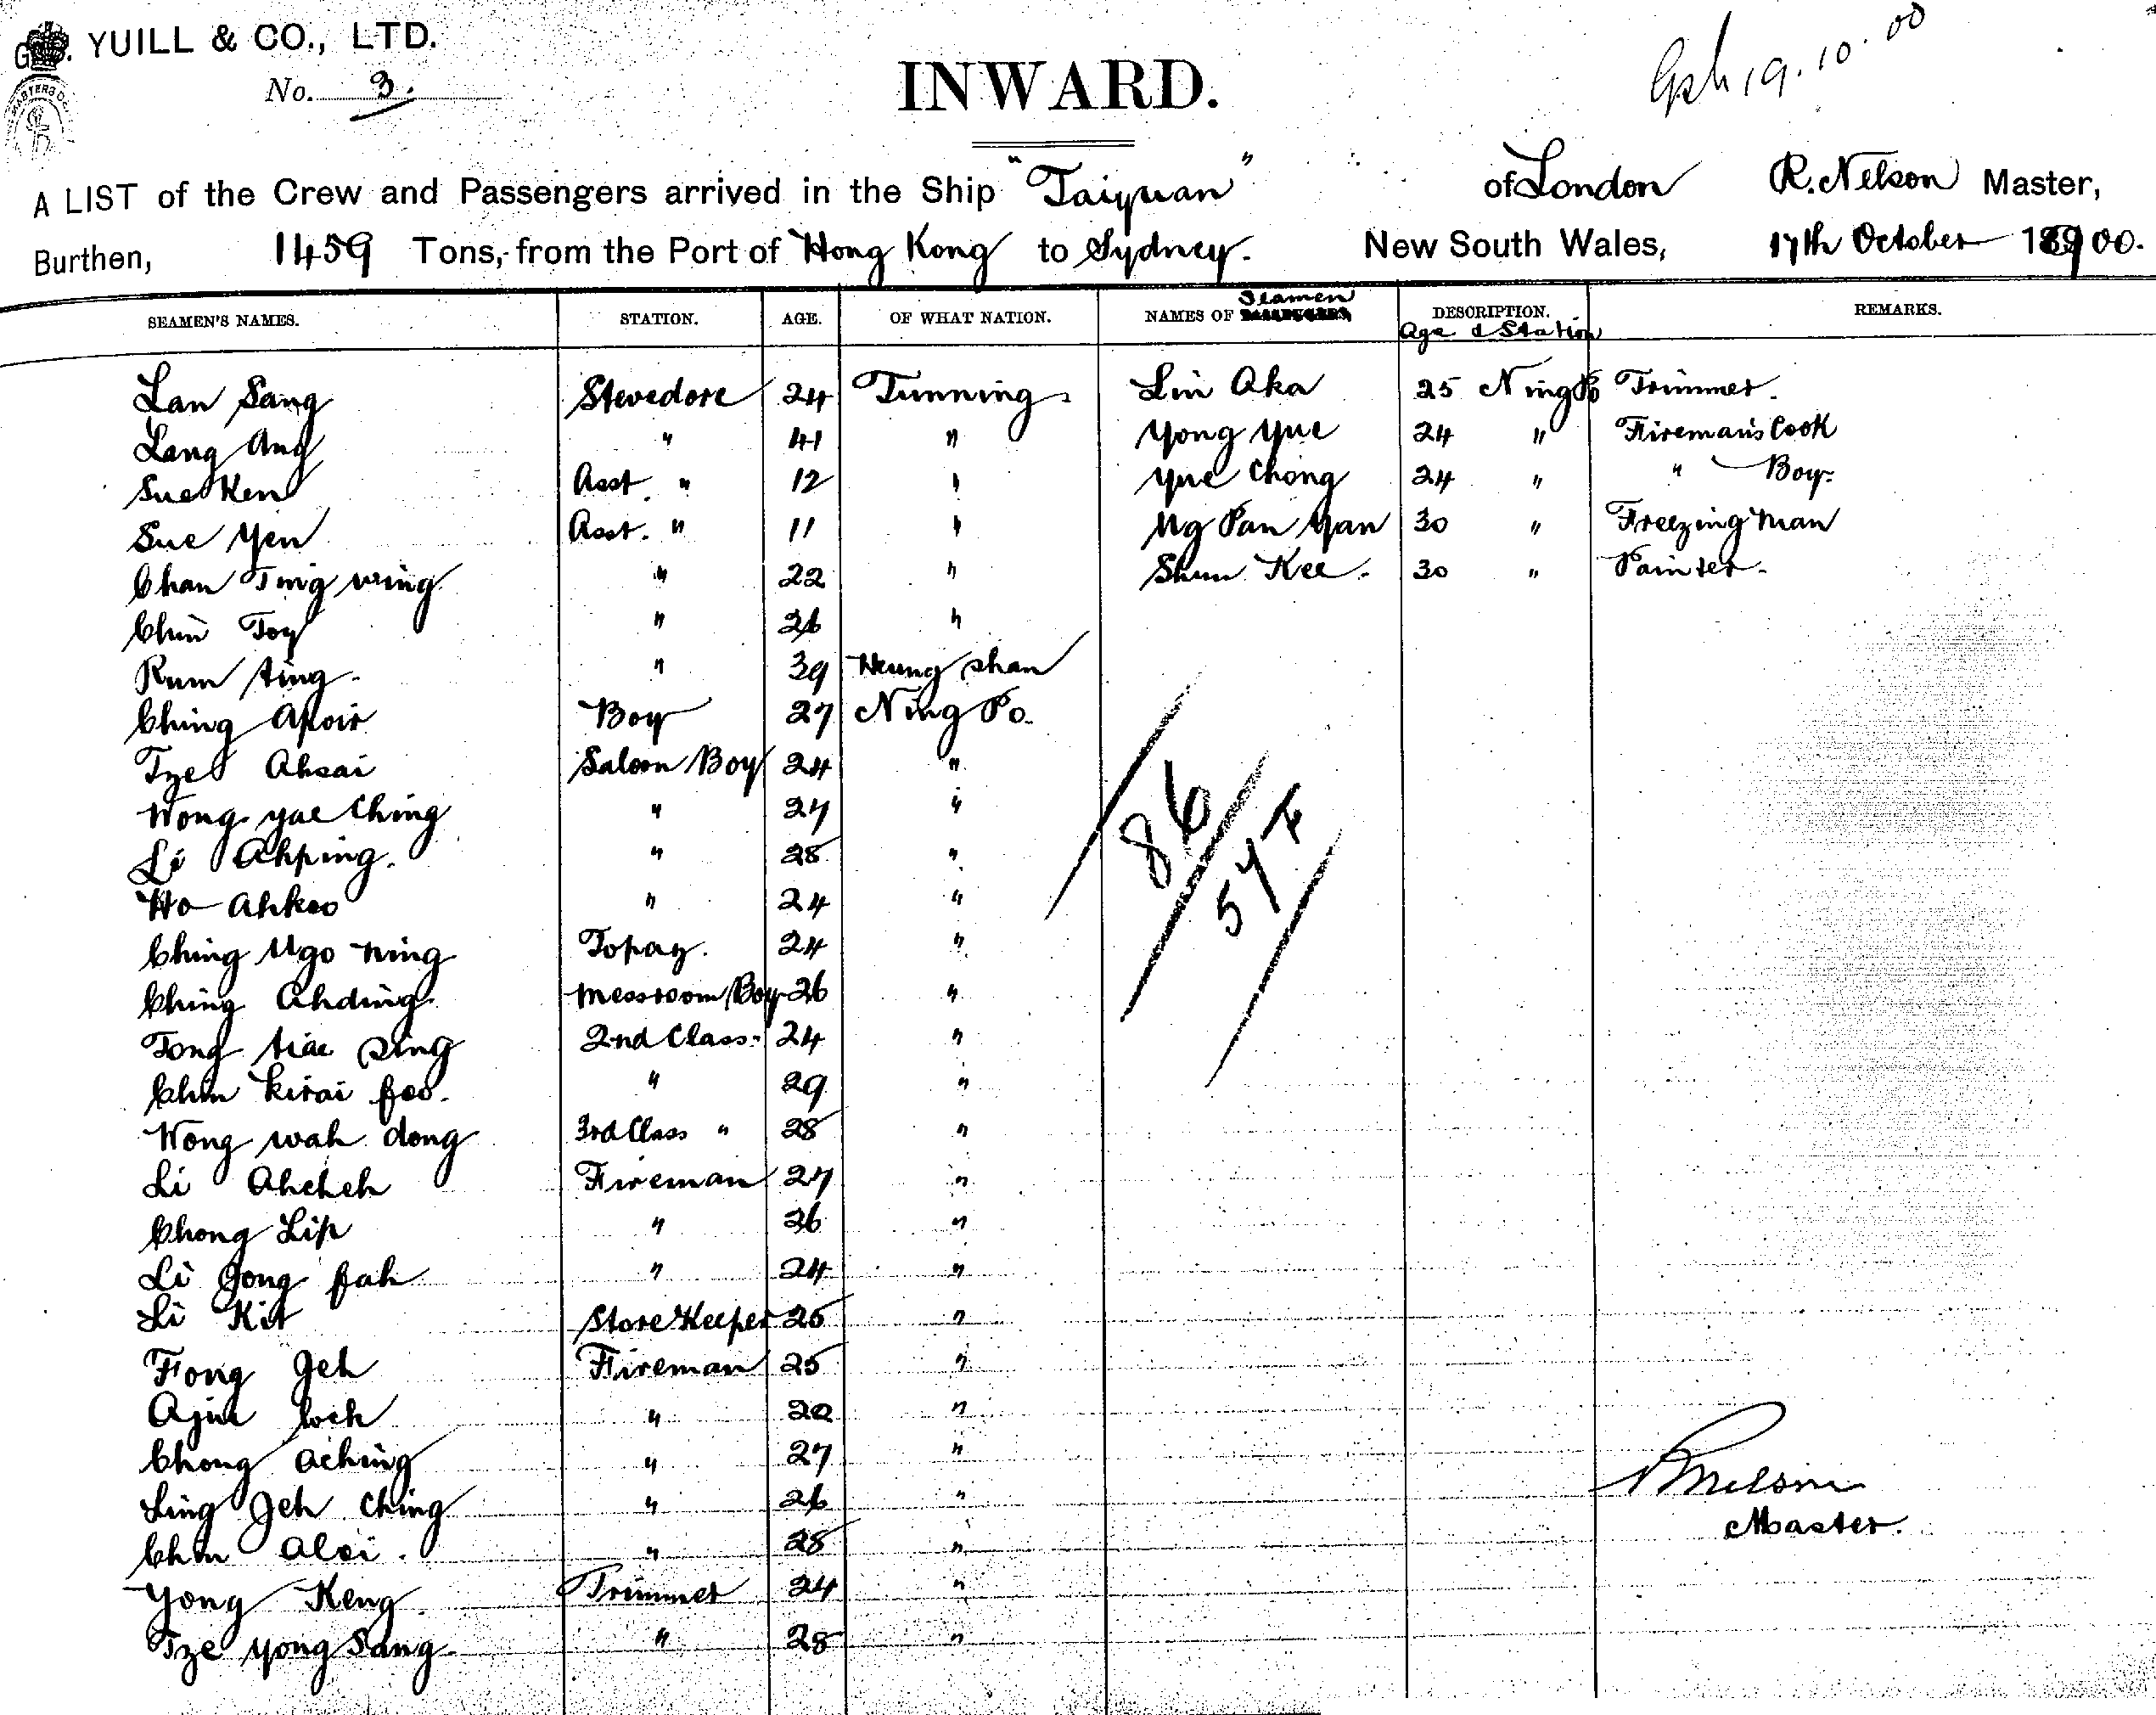 G. S. YUILL & CO., LTD.
No. 3.
INWARD.
19.10.00
A LIST of the Crew and Passengers arrived in the Ship "Taiyuan" of London R. Nelson Master,
Burthen, 1459 Tons, from the Port of Hong Kong to Sydney. New South Wales, 17th October 1900.
SEAMEN'S NAMES. STATION. AGE. OF WHAT NATION. NAMES OF Seamen DESCRIPTION. REMARKS.
Age & Station
Lan Sang Stevedore 24 Tunning Lin Aka 25 Ning Po Trimmer.
Lang Ang " 41 " Yong Yue 24 " Fireman's Cook
Sue Ken Asst. " 12 " Yue Chong 24 " " Boy.
Sue Yen Asst. " 11 " Ng Pan Yan 30 " Freezing Man
Chan Ting Wing " 22 " Shun Kee. 30 " Painter.
Chin Toy " 26 "
Kum Ting. " 39 Heung Shan
Ching Apoir Boy 27 Ning Po.
Tze Ahsai Saloon Boy 24 "
Wong Yae Ching " 27 "
Li Ahping. " 28 "
Ho Ahkoo " 24 "
Ching Ngo Ning Topaz. 24 "
Ching Ahding Messroom Boy 26 "
Tong Siae Sing 2nd Class " 24 "
Chin Kirai Foo. " 29 "
Wong Wah Dong 3rd Class " 28 "
Li Ahcheh Fireman 27 "
Chong Lip " 26 "
Li Gong Fah " 24 "
Li Kit Store Keeper 25 "
Fong Jeh Fireman 25 "
Ajue Loch " 20 "
Chong Aching " 27 "
Ling Jeh Ching " 26 "
Chin Aloi. " 28 "
Yong Keng Trimmer 24 "
Tze Yong Sang " 28 "
86
57
RNelson
Master.